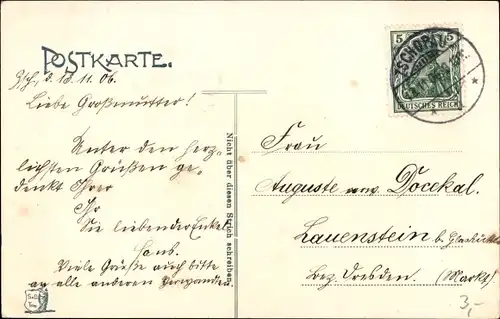 POSTKARTE.
Gsch., d. 13. 11. 06.
Liebe Großmutter!
Unter den herz-
lichsten Grüßen ge-
denkt Ihrer
Ihr
Sie liebender Enkel
Hans.
Viele Grüße auch bitte
an alle anderen Verwandten
Nicht über diesen Strich schreiben!
5 5
DEUTSCHES REICH
Frau
Auguste Docekal.
Lauenstein b. Glashütte
Bez. Dresden. (Markt)
3,-